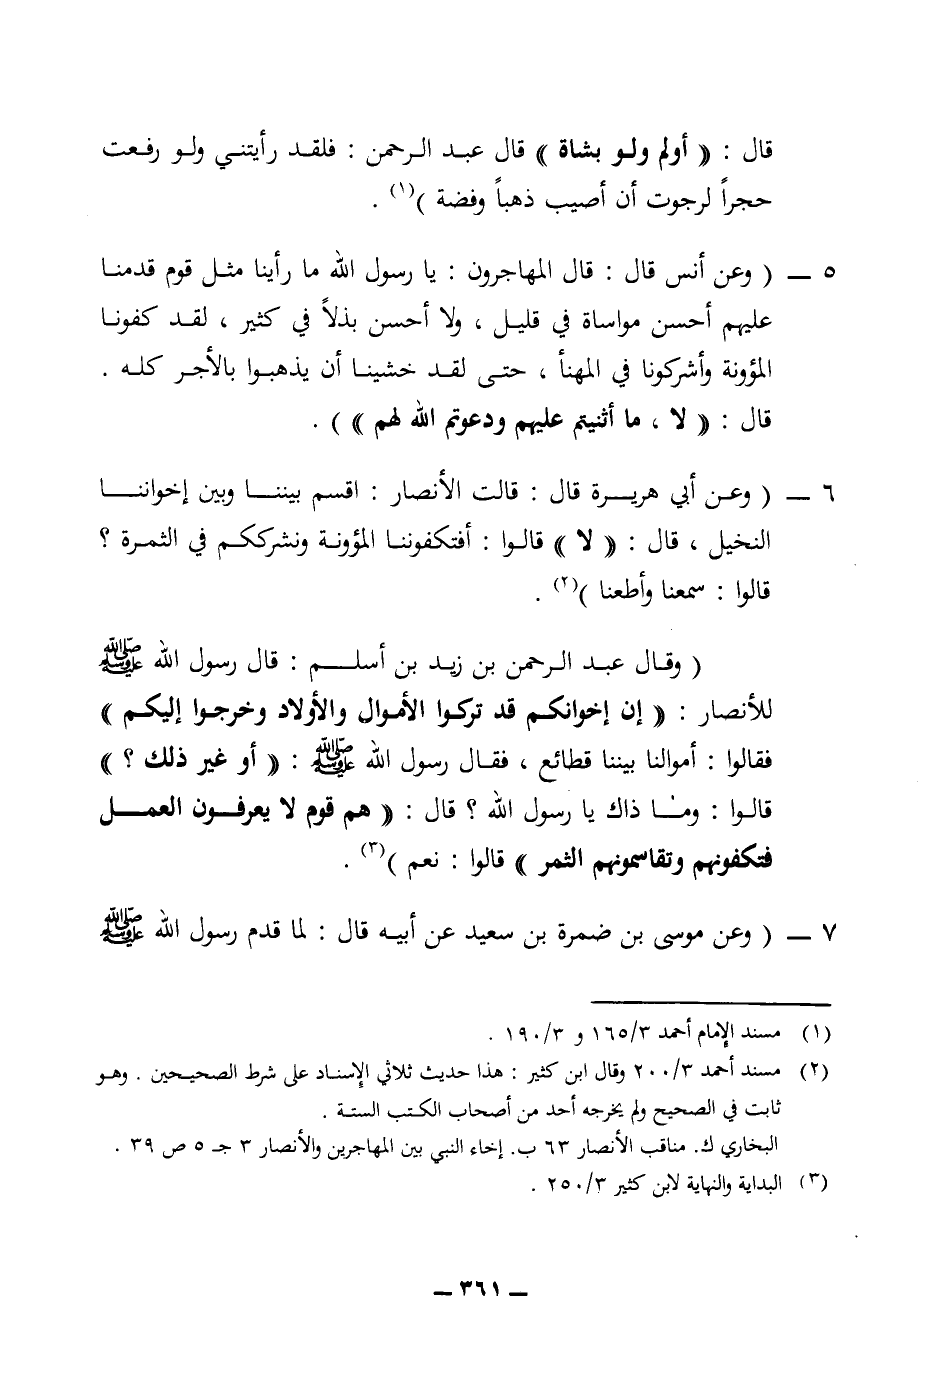 قال : « أولم ولو بشاة » قال عبد الرحمن : فلقد رأيتني ولو رفعت
حجراً لرجوت أن أصيب ذهباً وفضة )(١) .
٥ ــ ( وعن أنس قال : قال المهاجرون : يا رسول الله ما رأينا مثل قوم قدمنا
عليهم أحسن مواساة في قليل ، ولا أحسن بذلاً في كثير ، لقد كفونا
المؤونة وأشركونا في المهنأ ، حتى لقد خشينا أن يذهبوا بالأجر كله .
قال : « لا ، ما أثنيتم عليهم ودعوتم الله لهم » ) .
٦ ــ ( وعن أبي هريرة قال : قالت الأنصار : اقسم بيننا وبين إخواننا
النخيل ، قال : « لا » قالوا : أفتكفوننا المؤونة ونشرككم في الثمرة ؟
قالوا : سمعنا وأطعنا )(٢) .
( وقال عبد الرحمن بن زيد بن أسلم : قال رسول الله ﷺ
للأنصار : « إن إخوانكم قد تركوا الأموال والأولاد وخرجوا إليكم »
فقالوا : أموالنا بيننا قطائع ، فقال رسول الله ﷺ : « أو غير ذلك ؟ »
قالوا : وما ذاك يا رسول الله ؟ قال : « هم قوم لا يعرفون العمل
فتكفونهم وتقاسمونهم الثمر » قالوا : نعم )(٣) .
٧ ــ ( وعن موسى بن ضمرة بن سعيد عن أبيه قال : لما قدم رسول الله ﷺ
(١) مسند الإمام أحمد ١٦٥/٣ و ١٩٠/٣ .
(٢) مسند أحمد ٢٠٠/٣ وقال ابن كثير : هذا حديث ثلاثي الإسناد على شرط الصحيحين . وهو
ثابت في الصحيح ولم يخرجه أحد من أصحاب الكتب الستة .
البخاري ك. مناقب الأنصار ٦٣ ب. إخاء النبي بين المهاجرين والأنصار ٣ جـ ٥ ص ٣٩ .
(٣) البداية والنهاية لابن كثير ٢٥٠/٣ .
ــ ٣٦١ ــ